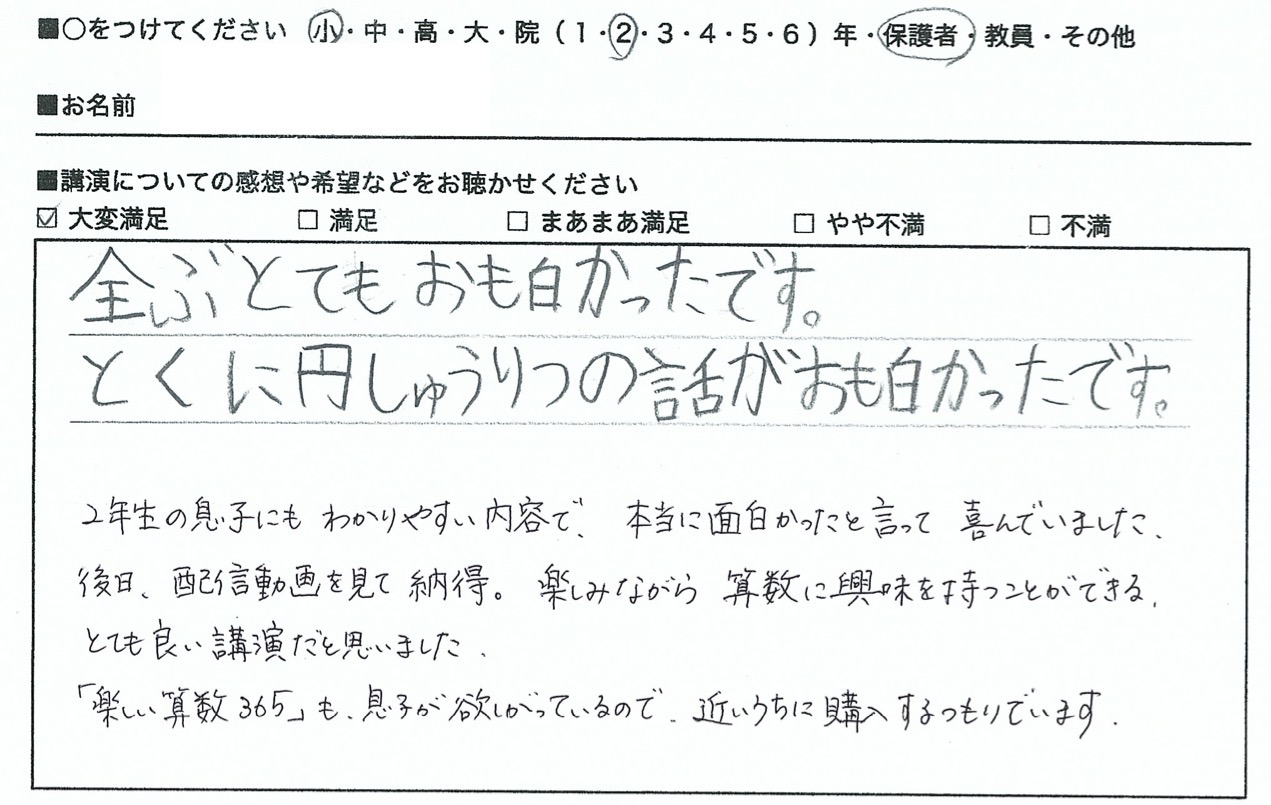 ■○をつけてください 小・中・高・大・院（1・2・3・4・5・6）年・保護者・教員・その他
■お名前
■講演についての感想や希望などをお聴かせください
☑ 大変満足 □ 満足 □ まあまあ満足 □ やや不満 □ 不満
全ぶとてもおも白かったです。
とくに円しゅうりつの話がおも白かったです。
2年生の息子にもわかりやすい内容で、本当に面白かったと言って喜んでいました。
後日、配信動画を見て納得。楽しみながら算数に興味を持つことができる、
とても良い講演だと思いました。
「楽しい算数365」も、息子が欲しがっているので、近いうちに購入するつもりでいます。